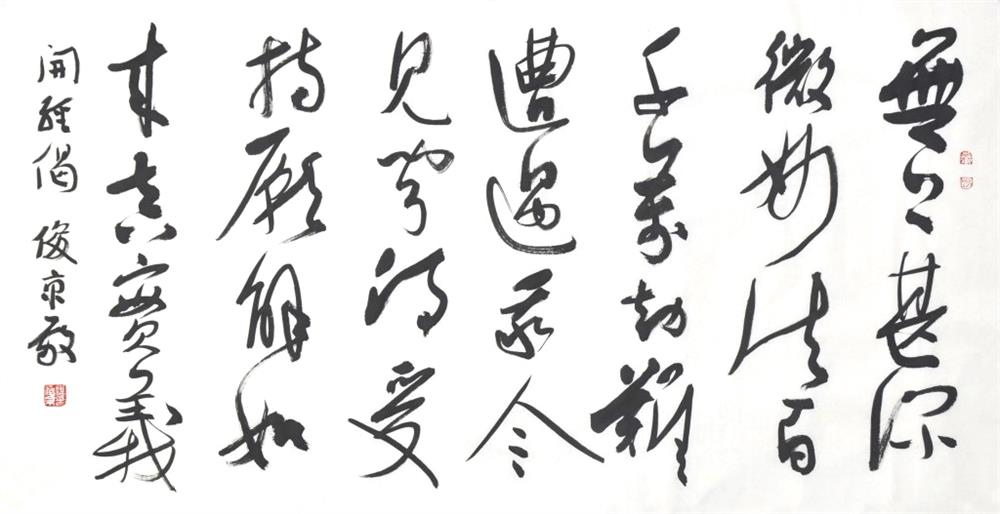 無上甚深
微妙法百
千萬劫難
遭遇我今
見聞得受
持願解如
来真實義
開經偈 俊京敬